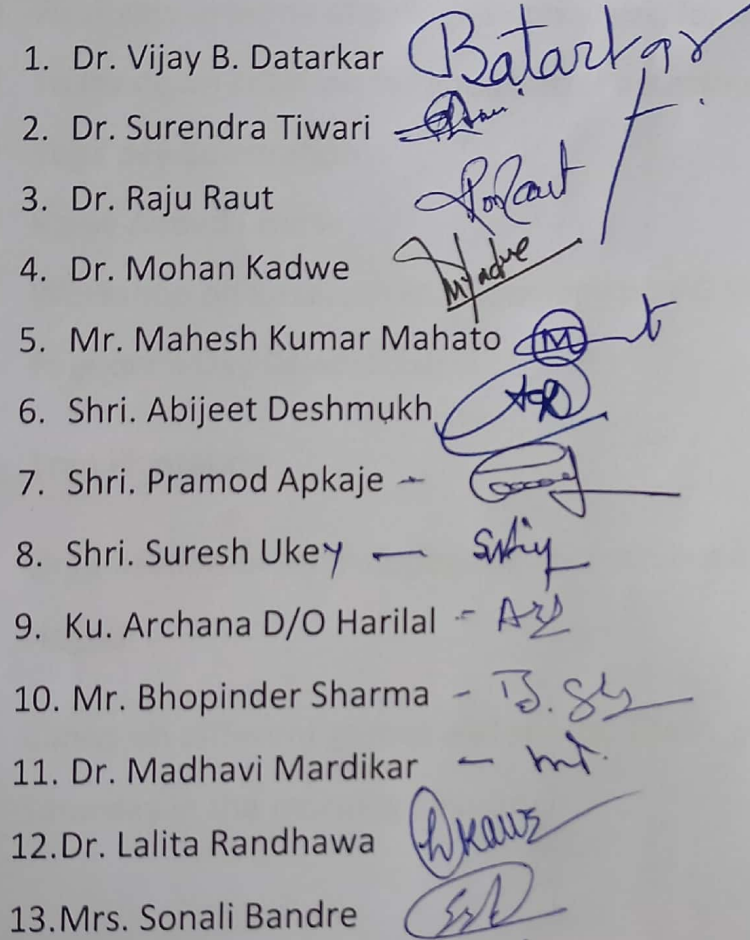 1. Dr. Vijay B. Datarkar Batarkar
2. Dr. Surendra Tiwari
3. Dr. Raju Raut
4. Dr. Mohan Kadwe
5. Mr. Mahesh Kumar Mahato M
6. Shri. Abijeet Deshmukh
7. Shri. Pramod Apkaje -
8. Shri. Suresh Ukey —
9. Ku. Archana D/O Harilal -
10. Mr. Bhopinder Sharma -
11. Dr. Madhavi Mardikar -
12.Dr. Lalita Randhawa
13.Mrs. Sonali Bandre